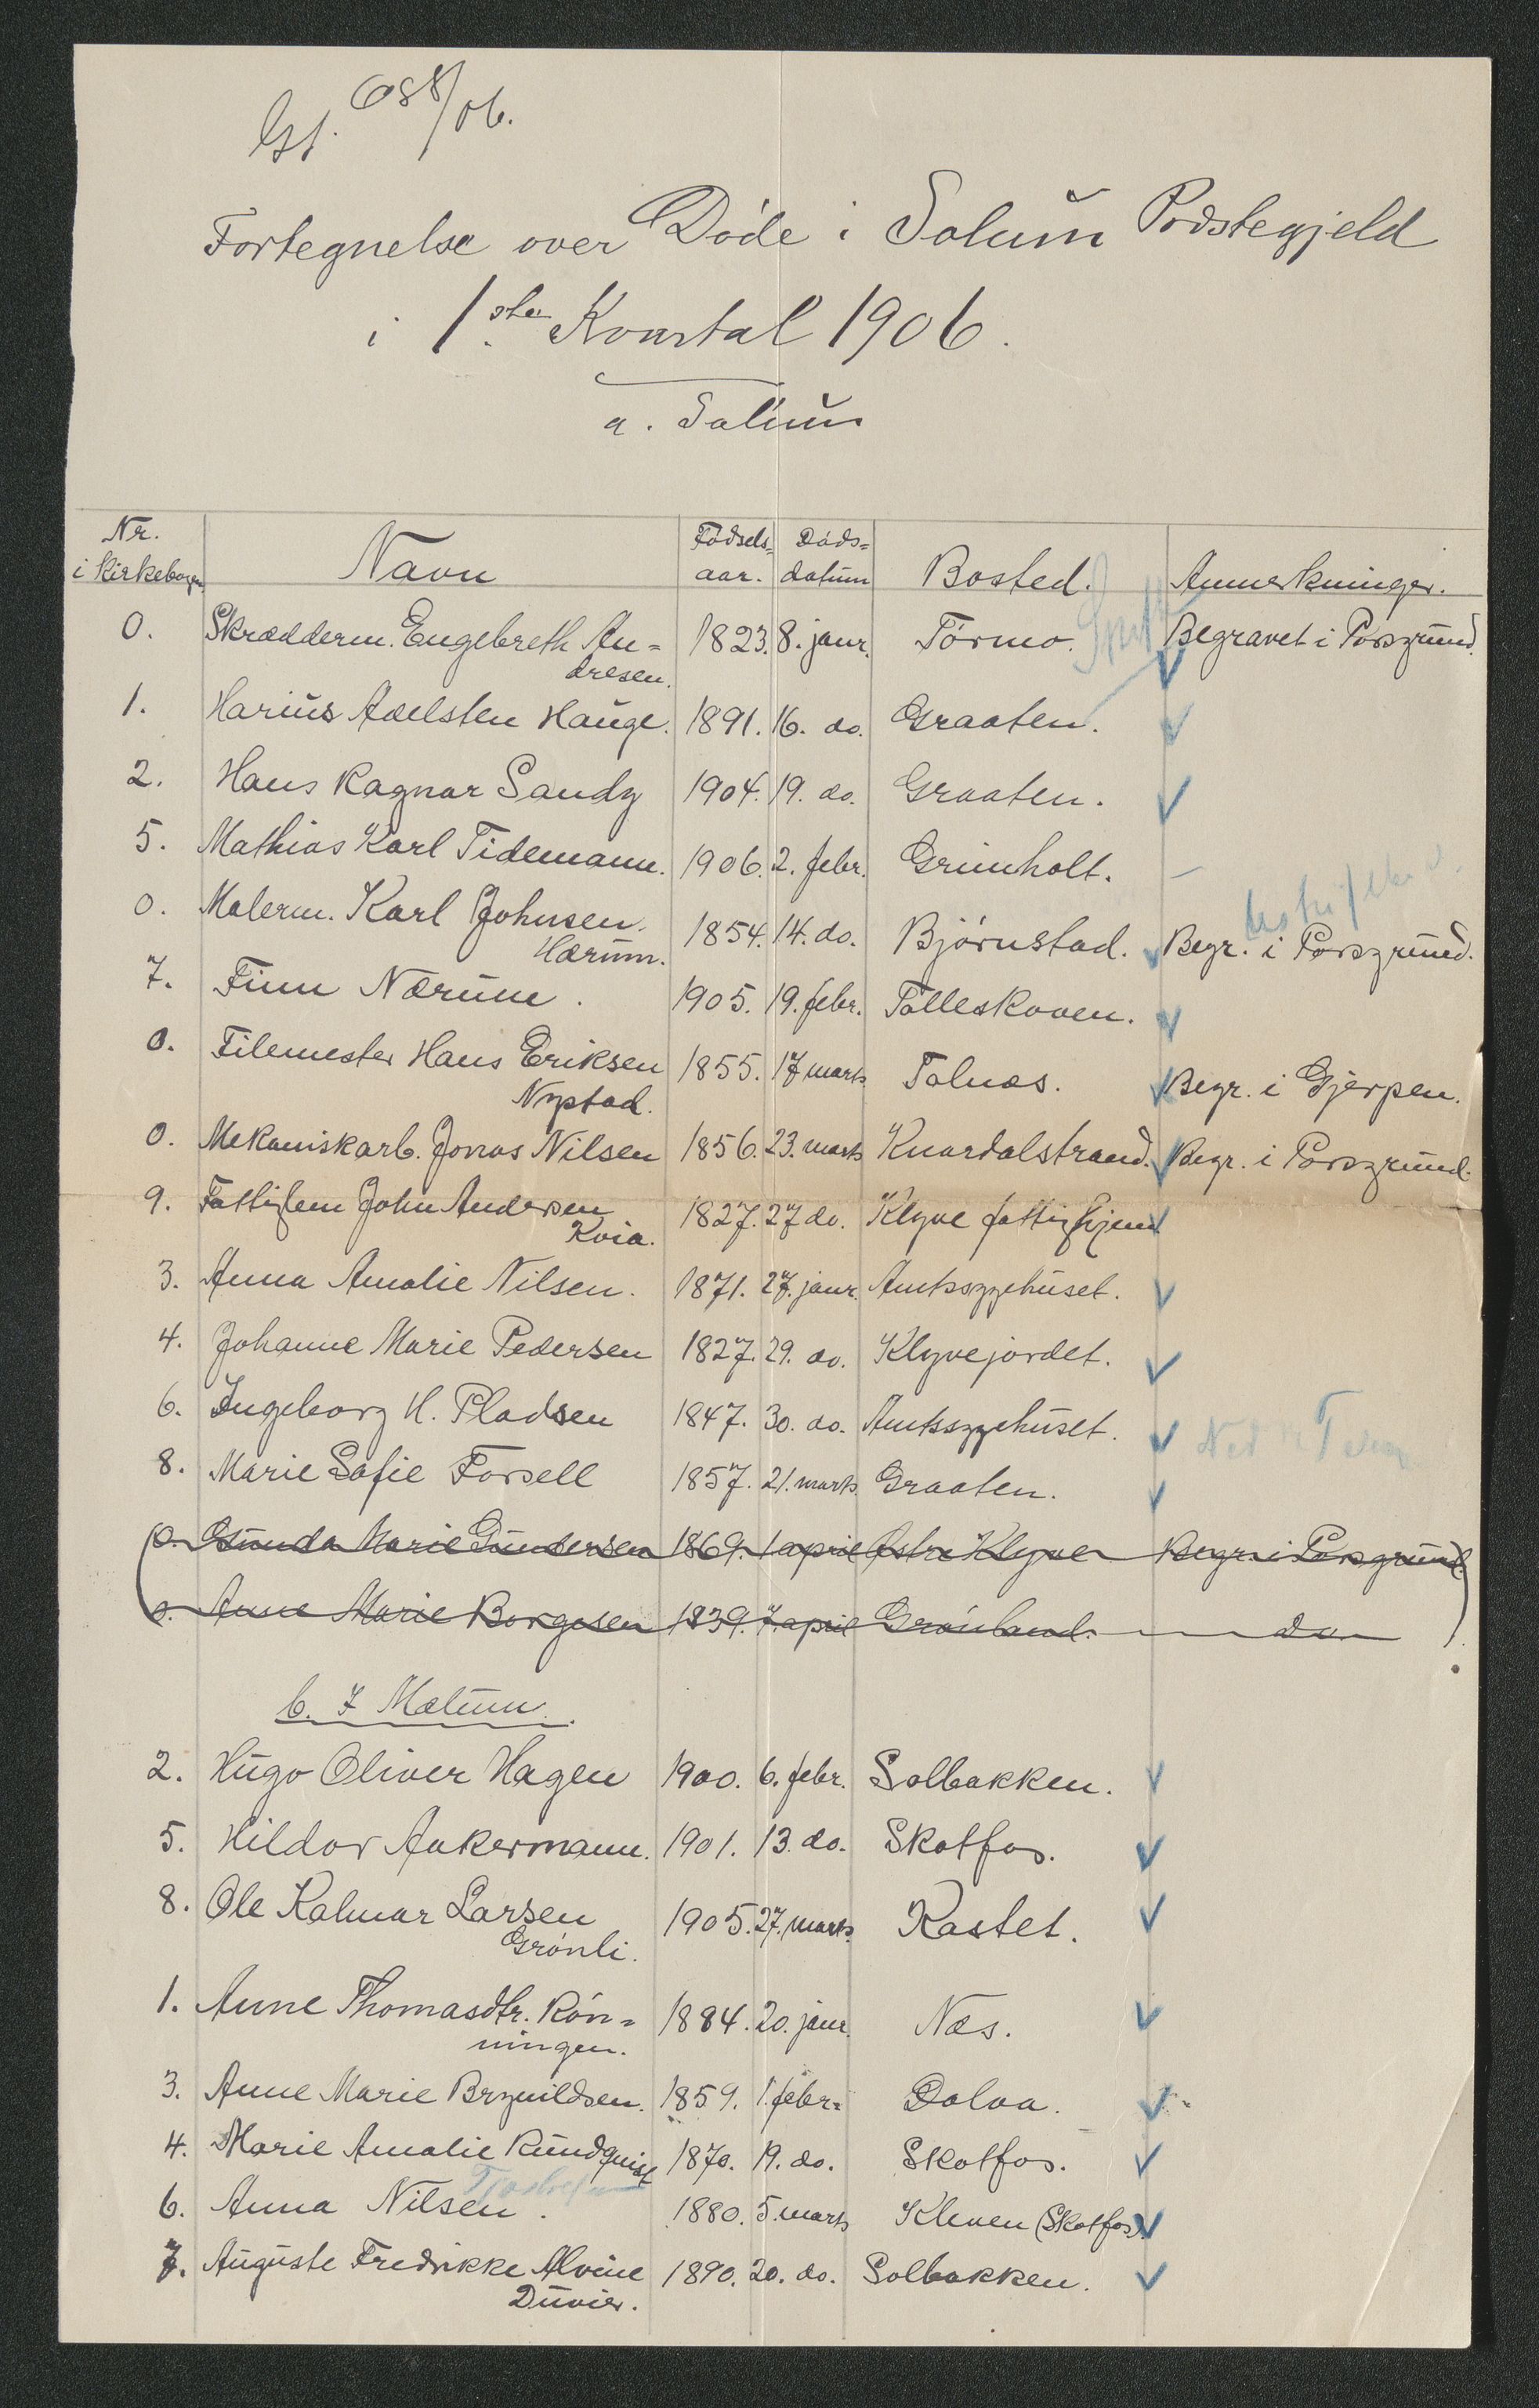 688/06.
Fortegnelse over Døde i Solum Præstegjeld
i 1ste Kvartal 1906.
a. Solum
Nr. i Kirkebogen Navn Fødsels-aar. Døds-datum Bosted. Anmerkninger.
0. Skrædderm. Engebreth An- 1823. 8. janr. Tørmo. Begravet i Porsgrund.
dresen.
1. Harius Adelsten Hauge. 1891. 16. do. Graaten.
2. Hans Ragnar Sandy 1904. 19. do. Graaten.
5. Mathias Karl Tidemann. 1906. 2. febr. Grimholt.
0. Malerm. Karl Johnsen. 1854. 14. do. Bjørnstad. Begr. i Porsgrund.
Hærum.
7. Finn Nærum. 1905. 19. febr. Tolleskoven.
0. Filemester Hans Eriksen 1855. 17 marts Tolnæs. Begr. i Gjerpen.
Nystad.
0. Mekaniskarb. Jonas Nilsen 1856. 23. marts Knardalstrand. Begr. i Porsgrund.
9. Fattiglem John Andersen 1827. 27 do. Klyve fattighjem
Kvia.
3. Anna Amalie Nilsen. 1871. 27. janr. Amtssygehuset.
4. Johanne Marie Pedersen 1827. 29. do. Klyvejordet.
6. Ingeborg H. Pladsen 1847. 30. do. Amtssygehuset.
8. Marie Sofie Forsell 1857. 21. marts Graaten.
(0. Gunda Marie Gundersen 1869. 1 april Østre Klyve Begr. i Porsgrund.)
(0. Anne Marie Borgesen 1839. 7. april Grønland. do )
b. I Melum.
2. Hugo Oliver Hagen 1900. 6. febr. Solbakken.
5. Hildor Ankermann. 1901. 13. do. Skotfos.
8. Ole Kalmar Larsen 1905. 27. marts. Rastet.
Grønli.
1. Anne Thomasdtr. Røn- 1884. 20. janr. Næs.
ningen.
3. Anne Marie Brynildsen. 1859. 1. febr. Dolva.
4. Marie Amalie Rundquist 1870. 19. do. Skotfos.
6. Anna Nilsen. 1880. 5. marts Kleven (Skotfos)
7. Auguste Fredrikke Alvine 1890. 20. do. Solbakken.
Duvier.